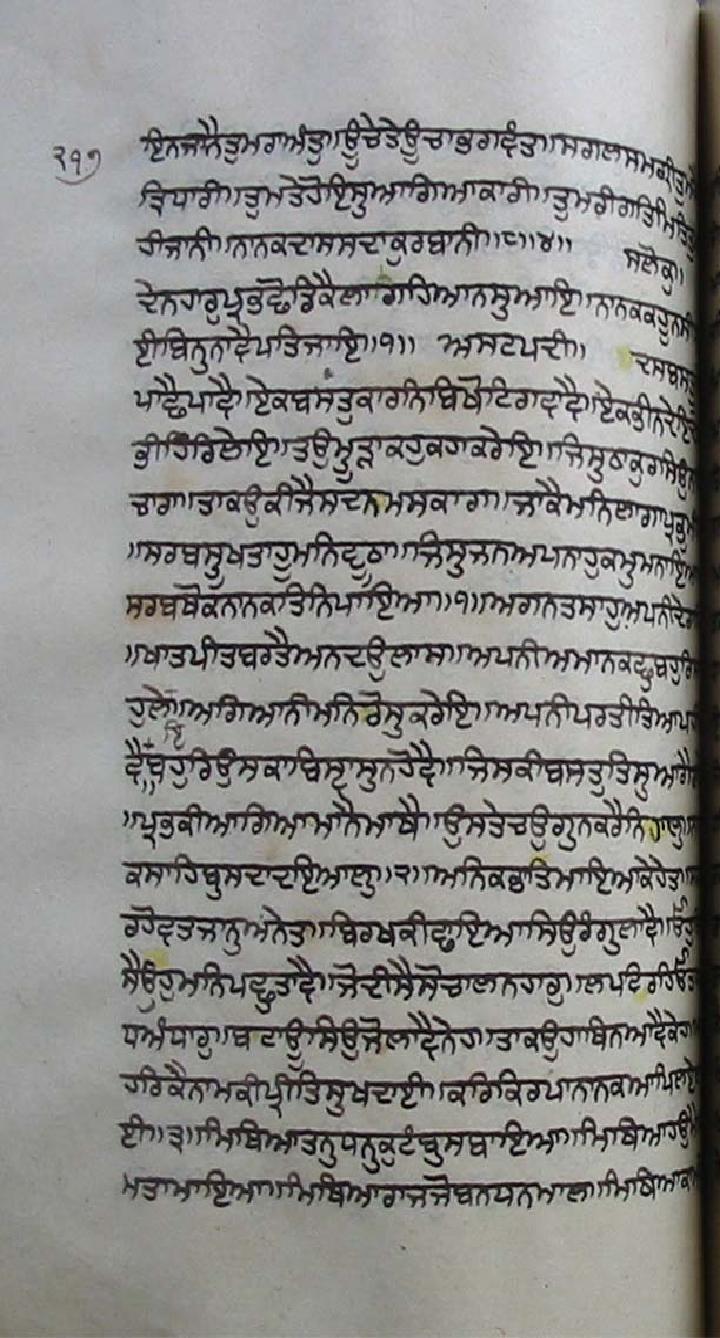 ੨੧੭
ਇਨਜਾਨੈਤੁਮਰਾਅੰਤੁ॥ਊਚੇਤੇਊਚਾਭਗਵੰਤ॥ਸਗਲਸਮਗ੍ਰੀਤੁਮਰੈ
ਤ੍ਰਿਧਾਰੀ॥ਤੁਮਤੇਹੋਇਸੁਆਗਿਆਕਾਰੀ॥ਤੁਮਰੀਗਤਿਮਿਤਿਤੁ
ਹੀਜਾਨੀ॥ਨਾਨਕਦਾਸਸਦਾਕੁਰਬਾਨੀ॥੮॥੪॥ ਸਲੋਕੁ॥
ਦੇਨਹਾਰੁਪ੍ਰਭਛੋਡਿਕੈਲਾਗਹਿਆਨਸੁਆਇ॥ਨਾਨਕਕਹੁਨਸੀ
ਈਬਿਨੁਨਾਵੈਪਤਿਜਾਇ॥੧॥ ਅਸਟਪਦੀ॥ ਦਸਬਸਤੂ
ਪਾਛੈਪਾਵੈ॥ਏਕਬਸਤੁਕਾਰਨਿਬਿਖੋਟਿਗਵਾਵੈ॥ਏਕਭੀਨਦੇਇਦ
ਭੀਹਿਰਿਲੇਇ॥ਤਉਮੂੜਾਕਹੁਕਹਾਕਰੇਇ॥ਜਿਸੁਠਾਕੁਰਸਿਉਨਾ
ਚਾਰਾ॥ਤਾਕਉਕੀਜੈਸਦਨਮਸਕਾਰਾ॥ਜਾਕੈਮਨਿਲਾਗਾਪ੍ਰਭੁਮੀ
॥ਸਰਬਸੂਖਤਾਹੂਮਨਿਵੂਠਾ॥ਜਿਸੁਜਨਅਪਨਾਹੁਕਮੁਮਨਾਇਆ
ਸਰਬਥੋਕਨਾਨਕਤਿਨਿਪਾਇਆ॥੧॥ਅਗਨਤਸਾਹੁਅਪਨੀਦੇਰਾ
॥ਖਾਤਪੀਤਬਰਤੈਅਨਦਉਲਾਸ॥ਅਪਨੀਅਮਾਨਕਛੁਬਹੁਰਿ
ਹੁਲੇਇ॥ਅਗਿਆਨੀਮਨਿਰੋਸੁਕਰੇਇ॥ਅਪਨੀਪਰਤੀਤਿਆਪਹੀ
ਵੈ॥ਬਹੁਰਿਉਸਕਾਬਿਸ੍ਵਾਸੁਨਹੋਵੈ॥ਜਿਸਕੀਬਸਤੁਤਿਸੁਆਗੈ
॥ਪ੍ਰਭਕੀਆਗਿਆਮਾਨੈਮਾਥੈ॥ਉਸਤੇਚਉਗੁਨਕਰੈਨਿਹਾਲੁ॥
ਕਸਾਹਿਬੁਸਦਾਦਇਆਲੁ॥੨॥ਅਨਿਕਭਾਤਿਮਾਇਆਕੇਹੇਤ॥
ਰਹੋਵਤਜਾਨੁਅਨੇਤ॥ਬਿਰਖਕੀਛਾਇਆਸਿਉਰੰਗੁਲਾਵੈ॥ਓਹੁ
ਸੈਉਹੁਮਨਿਪਛੁਤਾਵੈ॥ਜੋਦੀਸੈਸੋਚਾਲਨਹਾਰੁ॥ਲਪਟਿਰਹਿਓਤ
ਧਅੰਧਾਰੁ॥ਬਟਾਊਸਿਉਜੋਲਾਵੈਨੇਹ॥ਤਾਕਉਹਾਥਿਨਆਵੈਕੇਹ॥
ਹਰਿਕੈਨਾਮਕੀਪ੍ਰੀਤਿਸੁਖਦਾਈ॥ਕਰਿਕਿਰਪਾਨਾਨਕਆਪਿਲਏ
ਈ॥੩॥ਮਿਥਿਆਤਨੁਧਨੁਕੁਟੰਬੁਸਬਾਇਆ॥ਮਿਥਿਆਹਉਮੈ
ਮਤਾਮਾਇਆ॥ਮਿਥਿਆਰਾਜਜੋਬਨਧਨਮਾਲ॥ਮਿਥਿਆਕਾ